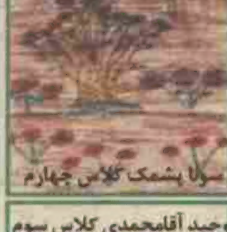 سونا پشمک کلاس چهارم
وحید آقامحمدی کلاس سوم